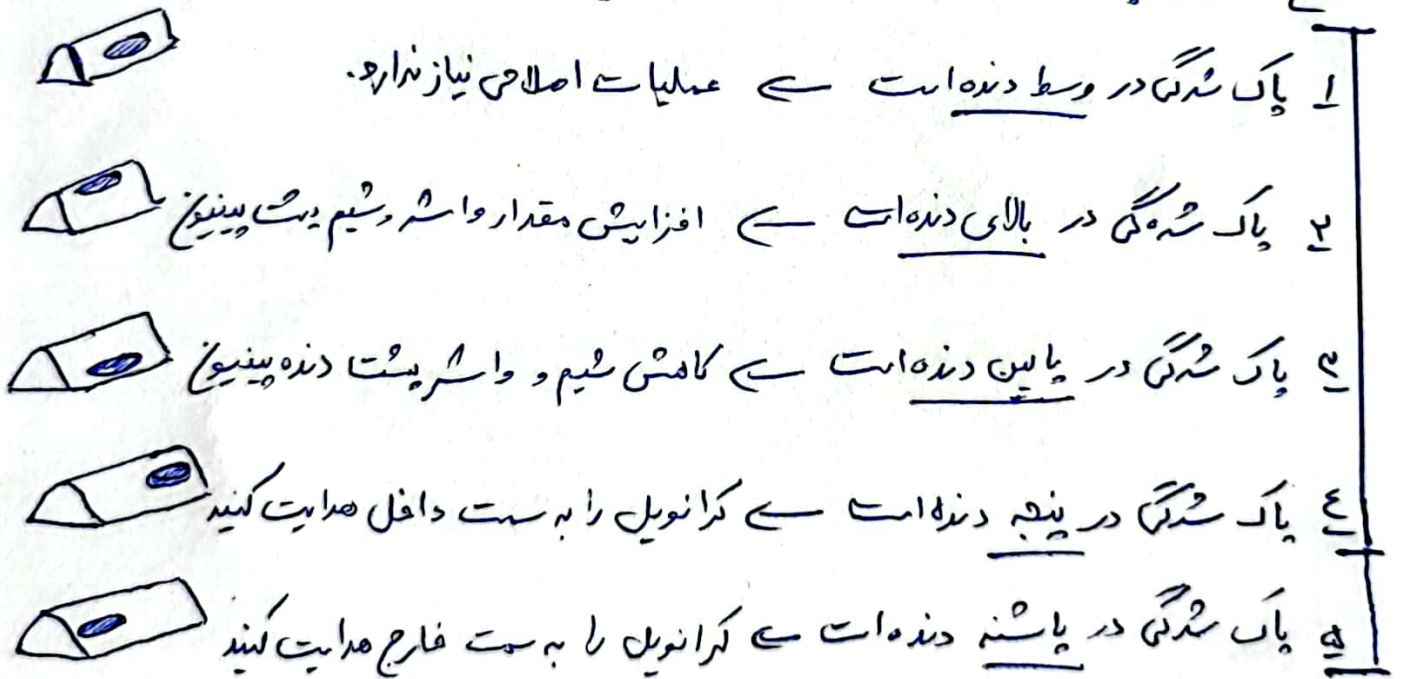 1 پاک شدگی در وسط دنده است ← عملیات اصلاحی نیاز ندارد.
2 پاک شدگی در بالای دنده است ← افزایش مقدار واشر و شیم پشت پینیون
3 پاک شدگی در پایین دنده است ← کاهش شیم و واشر پشت دنده پینیون
4 پاک شدگی در پنجه دنده است ← کرانویل را به سمت داخل هدایت کنید
5 پاک شدگی در پاشنه دنده است ← کرانویل را به سمت خارج هدایت کنید